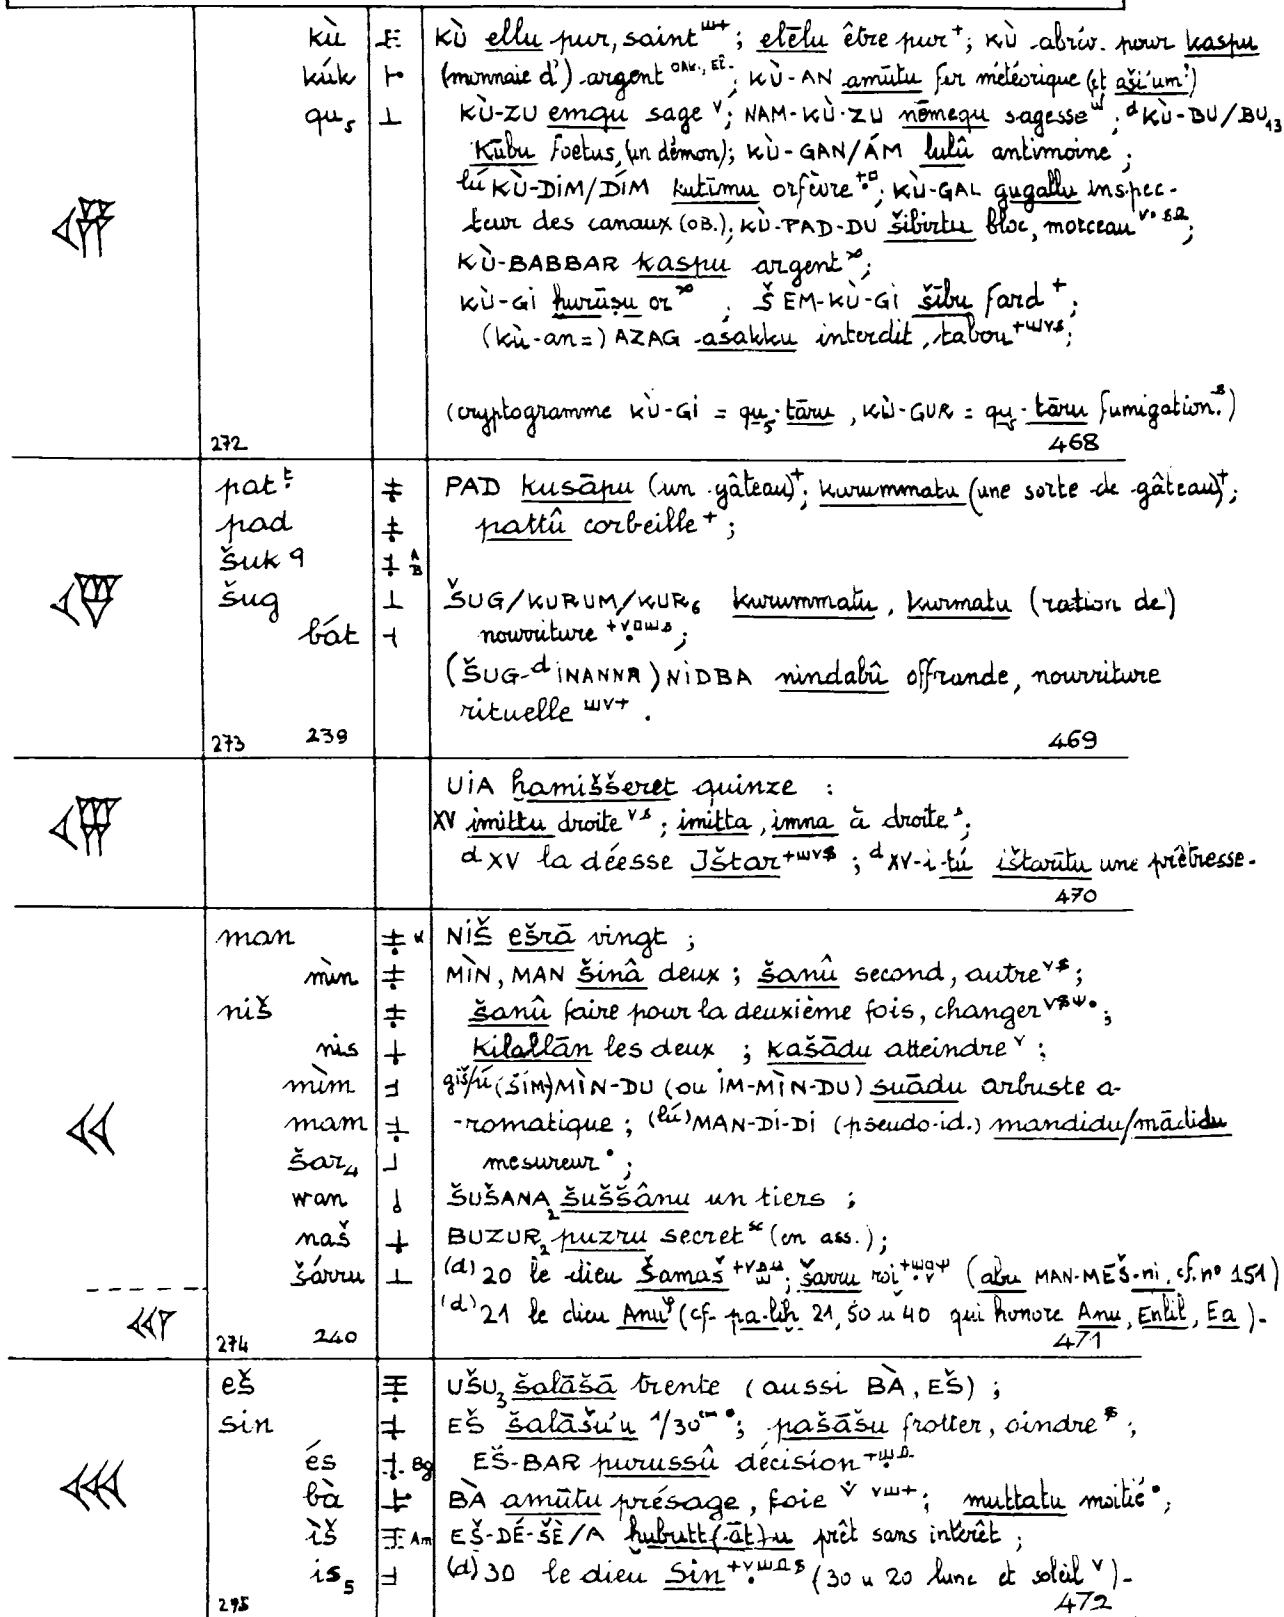 kù KÙ ellu pur, saint ; elēlu être pur ; KÙ abrév. pour kaspu
kúk (monnaie d') argent OAk., EL. ; KÙ-AN amūtu fer météorique (et aši'um?)
qu₅ KÙ-ZU emqu sage ; NAM-KÙ-ZU nēmequ sagesse ; ᵈKÙ-BU/BU₁₃
Kūbu foetus, (un démon); KÙ-GAN/ÁM lulû antimoine ;
lú KÙ-DIM/DÍM kutīmu orfèvre ; KÙ-GAL gugallu inspec-
teur des canaux (OB.); KÙ-PAD-DU šibirtu bloc, morceau ;
KÙ-BABBAR kaspu argent ;
KÙ-GI ḫurāṣu or ; ŠEM-KÙ-GI šību fard ;
(kù-an=) AZAG asakku interdit, tabou ;
(cryptogramme KÙ-GI = qu₅-tāru, KÙ-GUR = qu₅-tāru fumigation.)
272 468
pat PAD kusāpu (un gâteau) ; kurummatu (une sorte de gâteau) ;
pad pattû corbeille ;
šuk 9
šug ŠUG/KURUM/KUR₆ kurummatu, kurmatu (ration de)
bát nourriture ;
(ŠUG-ᵈINANNA) NIDBA nindabû offrande, nourriture
rituelle .
273 239 469
UIA ḫamiššeret quinze :
XV imittu droite ; imitta, imna à droite ;
ᵈXV la déesse Ištar ; ᵈXV-i-tú ištarītu une prêtresse.
470
man NIŠ ešrā vingt ;
mìn MÌN, MAN šinâ deux ; šanû second, autre ;
niš šanû faire pour la deuxième fois, changer ;
nis kilallān les deux ; kašādu atteindre ;
mìm giš/ú (ŠIM)MÌN-DU (ou IM-MÌN-DU) suādu arbuste a-
mam -romatique ; (lú)MAN-DI-DI (pseudo-id.) mandidu/mādidu
šar₄ mesureur ;
wan ŠUŠANA₂ šuššânu un tiers ;
naš BUZUR₂ puzru secret (en ass.) ;
šárru (d) 20 le dieu Šamaš ; šarru roi (abu MAN-MEŠ-ni, cf. nº 151)
(d) 21 le dieu Anu (cf. pa-liḫ 21, 50 u 40 qui honore Anu, Enlil, Ea).
274 240 471
eš UŠU₃ šalāšā trente (aussi BÀ, EŠ) ;
sin EŠ šalāšu'u 1/30 ; pašāšu frotter, oindre ;
és Bg EŠ-BAR purussû décision
bà BÀ amūtu présage, foie ; muttatu moitié ;
ìš Am EŠ-DÉ-ŠÈ/A ḫubutt(-āt)u prêt sans intérêt ;
is₅ (d) 30 le dieu Sin (30 u 20 lune et soleil).
295 472